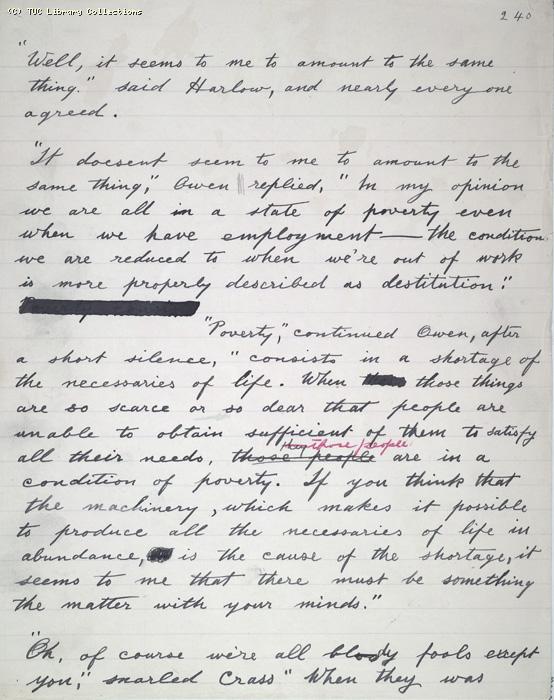 (C) TUC Library Collections
240
"Well, it seems to me to amount to the same
thing." said Harlow, and nearly every one
agreed.
"It doesent seem to me to amount to the
same thing," Owen replied, "In my opinion
we are all in a state of poverty even
when we have employment — the condition
we are reduced to when we're out of work
is more properly described as destitution."
"Poverty," continued Owen, after
a short silence, "consists in a shortage of
the necessaries of life. When those things
are so scarce or so dear that people are
unable to obtain sufficient of them to satisfy
they those people
all their needs, those people are in a
condition of poverty. If you think that
the machinery, which makes it possible
to produce all the necessaries of life in
abundance, is the cause of the shortage, it
seems to me that there must be something
the matter with your minds."
"Oh, of course we're all bloody fools except
you," snarled Crass "When they was